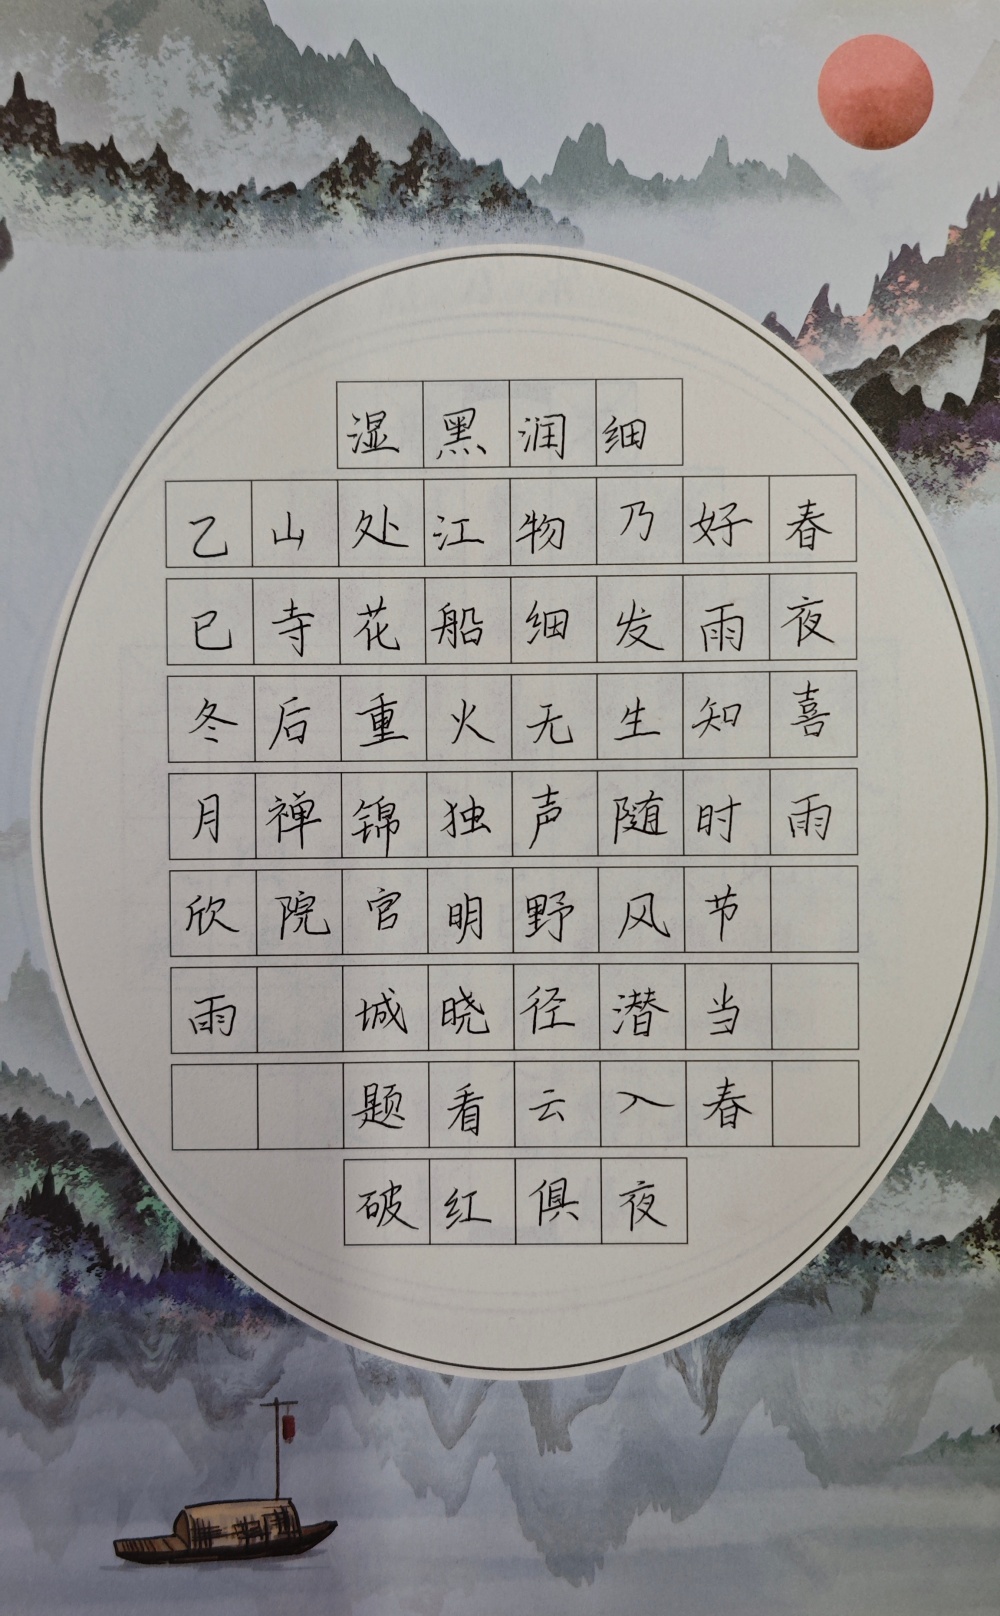 春夜喜雨
好雨知时节当春
细乃发生随风潜入夜
润物细无声野径云俱
黑江船火独明晓看红
湿处花重锦官城题破
山寺后禅院
乙巳冬月欣雨